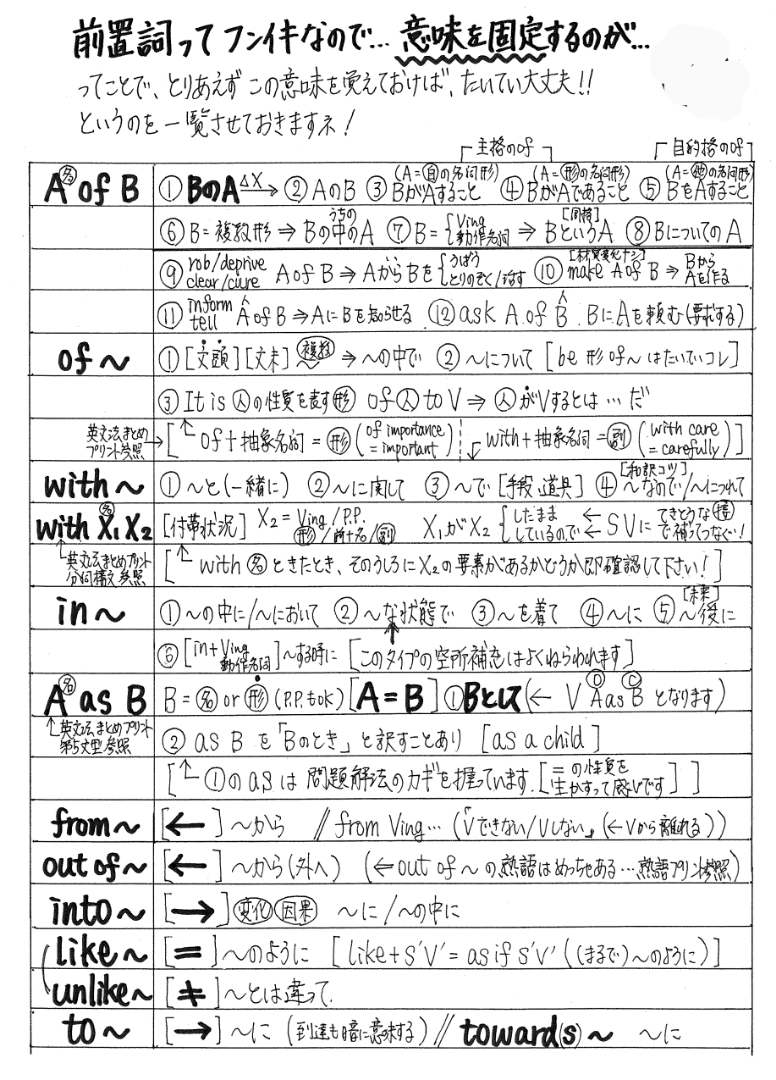 前置詞ってフンイキなので… 意味を固定するのが…
ってことで、とりあえずこの意味を覚えておけば、たいてい大丈夫!!
というのを一覧させておきますネ!
主格のof 目的格のof
A名 of B ① BのA ② AのB ③ BがAすること (A=自の名詞形) ④ BがAであること (A=形の名詞形) ⑤ BをAすること (A=他の名詞形)
⑥ B=複数形 ⇒ Bの中のA うちの ⑦ B={Ving 動作名詞 ⇒ BというA [同格] ⑧ BについてのA
⑨ rob/deprive clear/cure A of B ⇒ AからBを{うばう とりのぞく/治す ⑩ [材質変化ナシ] make A of B ⇒ BからAを作る
⑪ inform tell A人 of B ⇒ AにBを知らせる ⑫ ask A of B人 BにAを頼む(要求する)
of〜 ① [文頭][文末]〜複数 ⇒ 〜の中で ② 〜について [be 形 of〜はたいていコレ]
③ It is 人の性質を表す形 of 人 to V ⇒ 人がVするとは…だ
英文法まとめプリント参照 [of+抽象名詞=形(of importance = important) with+抽象名詞=副(with care = carefully)]
with〜 ① 〜と(一緒に) ② 〜に関して ③ 〜で[手段、道具] ④ [和訳コツ] 〜なので/〜につれて
with X1名 X2 [付帯状況] X2=Ving/P.P. 形/前+名/副 X1がX2{したまま しているので ← SVに てきとうな接で補ってつなぐ!
英文法まとめプリント分詞構文参照 [with 名ときたとき、そのうしろにX2の要素があるかどうか即確認して下さい!]
in〜 ① 〜の中に/〜において ② 〜な状態で ③ 〜を着て ④ 〜に ⑤ [未来] 〜後に
⑥ [in+Ving 動作名詞] 〜する時に [このタイプの空所補充はよくねらわれます]
A名 as B B=名 or 形(P.P.もOK) [A=B] ① Bとして(← V A as B となります) O C
英文法まとめプリント第5文型参照 ② as B を「Bのとき」と訳すことあり [as a child]
[①のasは問題解法のカギを握っています。[=の性質を生かすって感じです]]
from〜 [←] 〜から // from Ving…(「Vできない/Vしない」(←Vから離れる))
out of〜 [←] 〜から(外へ) (← out of 〜の熟語はめっちゃある…熟語プリント参照)
into〜 [→] 変化 因果 〜に/〜の中に
like〜 [=] 〜のように [like+S'V'=as if S'V'((まるで)〜のように)]
unlike〜 [≠] 〜とは違って.
to〜 [→] 〜に (到達も暗に意味する) // toward(s)〜 〜に